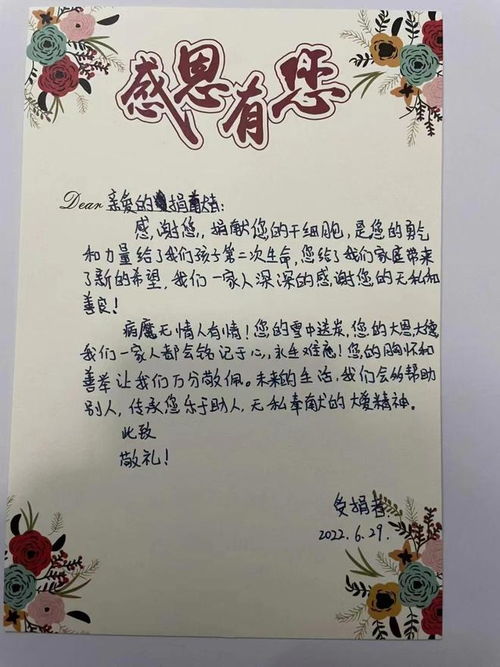 感恩有您
Dear 亲爱的捐
感谢您,捐献您的干细胞,是您的勇气
和力量给了我们孩子第二次生命,您给了我们家庭带来
了新的希望,我们一家人深深的感谢您的无私和
善良!
病魔无情人有情!您的雪中送炭,您的大恩大德
我们一家人都会铭记于心,永生难忘!您的胸怀和
善举让我们万分敬佩。未来的生活,我们会多帮助
别人,传承您乐于助人,无私奉献的大爱精神。
此致
敬礼!
受捐者
2022.6.29.